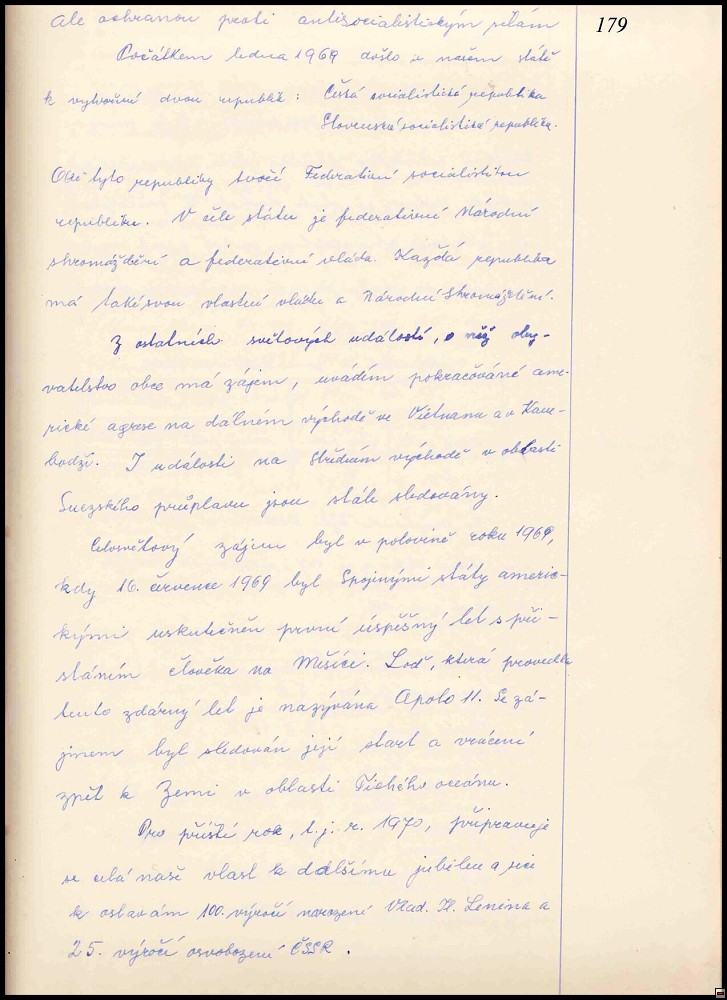 179
ale ochranou proti antisocialistickým silám
Počátkem ledna 1969 došlo v našem státě
k vytvoření dvou republik: Česká socialistická republika
Slovenská socialistická republika.
Obě tyto republiky tvoří Federativní socialistickou
republiku. V čele státu je federativní Národní
shromáždění a federativní vláda. Každá republika
má také svou vlastní vládu a Národní shromáždění.
Z ostatních světových událostí, o něž oby-
vatelstvo obce má zájem, uvádím pokračování ame-
rické agrese na dálném východě ve Vietnamu a v Kam-
bodži. I události na Středním východě v oblasti
Suezského průplavu jsou stále sledovány.
Celosvětový zájem byl v polovině roku 1969,
kdy 16. července 1969 byl Spojenými státy americ-
kými uskutečněn první úspěšný let s při-
stáním člověka na Měsíci. Loď, která provedla
tento zdárný let je nazývána Apolo 11. Se zá-
jmem byl sledován její start a vrácení
zpět k Zemi v oblasti Tichého oceánu.
Pro příští rok, t.j. r. 1970, připravuje
se celá naše vlast k dalšímu jubileu a sice
k oslavám 100. výročí narození Vlad. Il. Lenina a
25. výročí osvobození ČSSR.